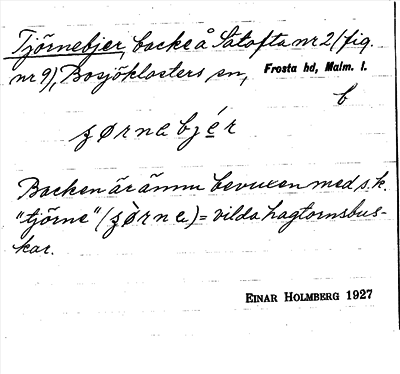 Tjörnebjer, backe å Sätofta nr 2 (fig.
nr 9), Bosjöklosters sn, Frosta hd, Malm. l.
b
ʒørnabjér
Backen är ännu bevuxen med s.k.
"tjörne" (ʒørna) = vilda hagtornsbus-
kar.
EINAR HOLMBERG 1927